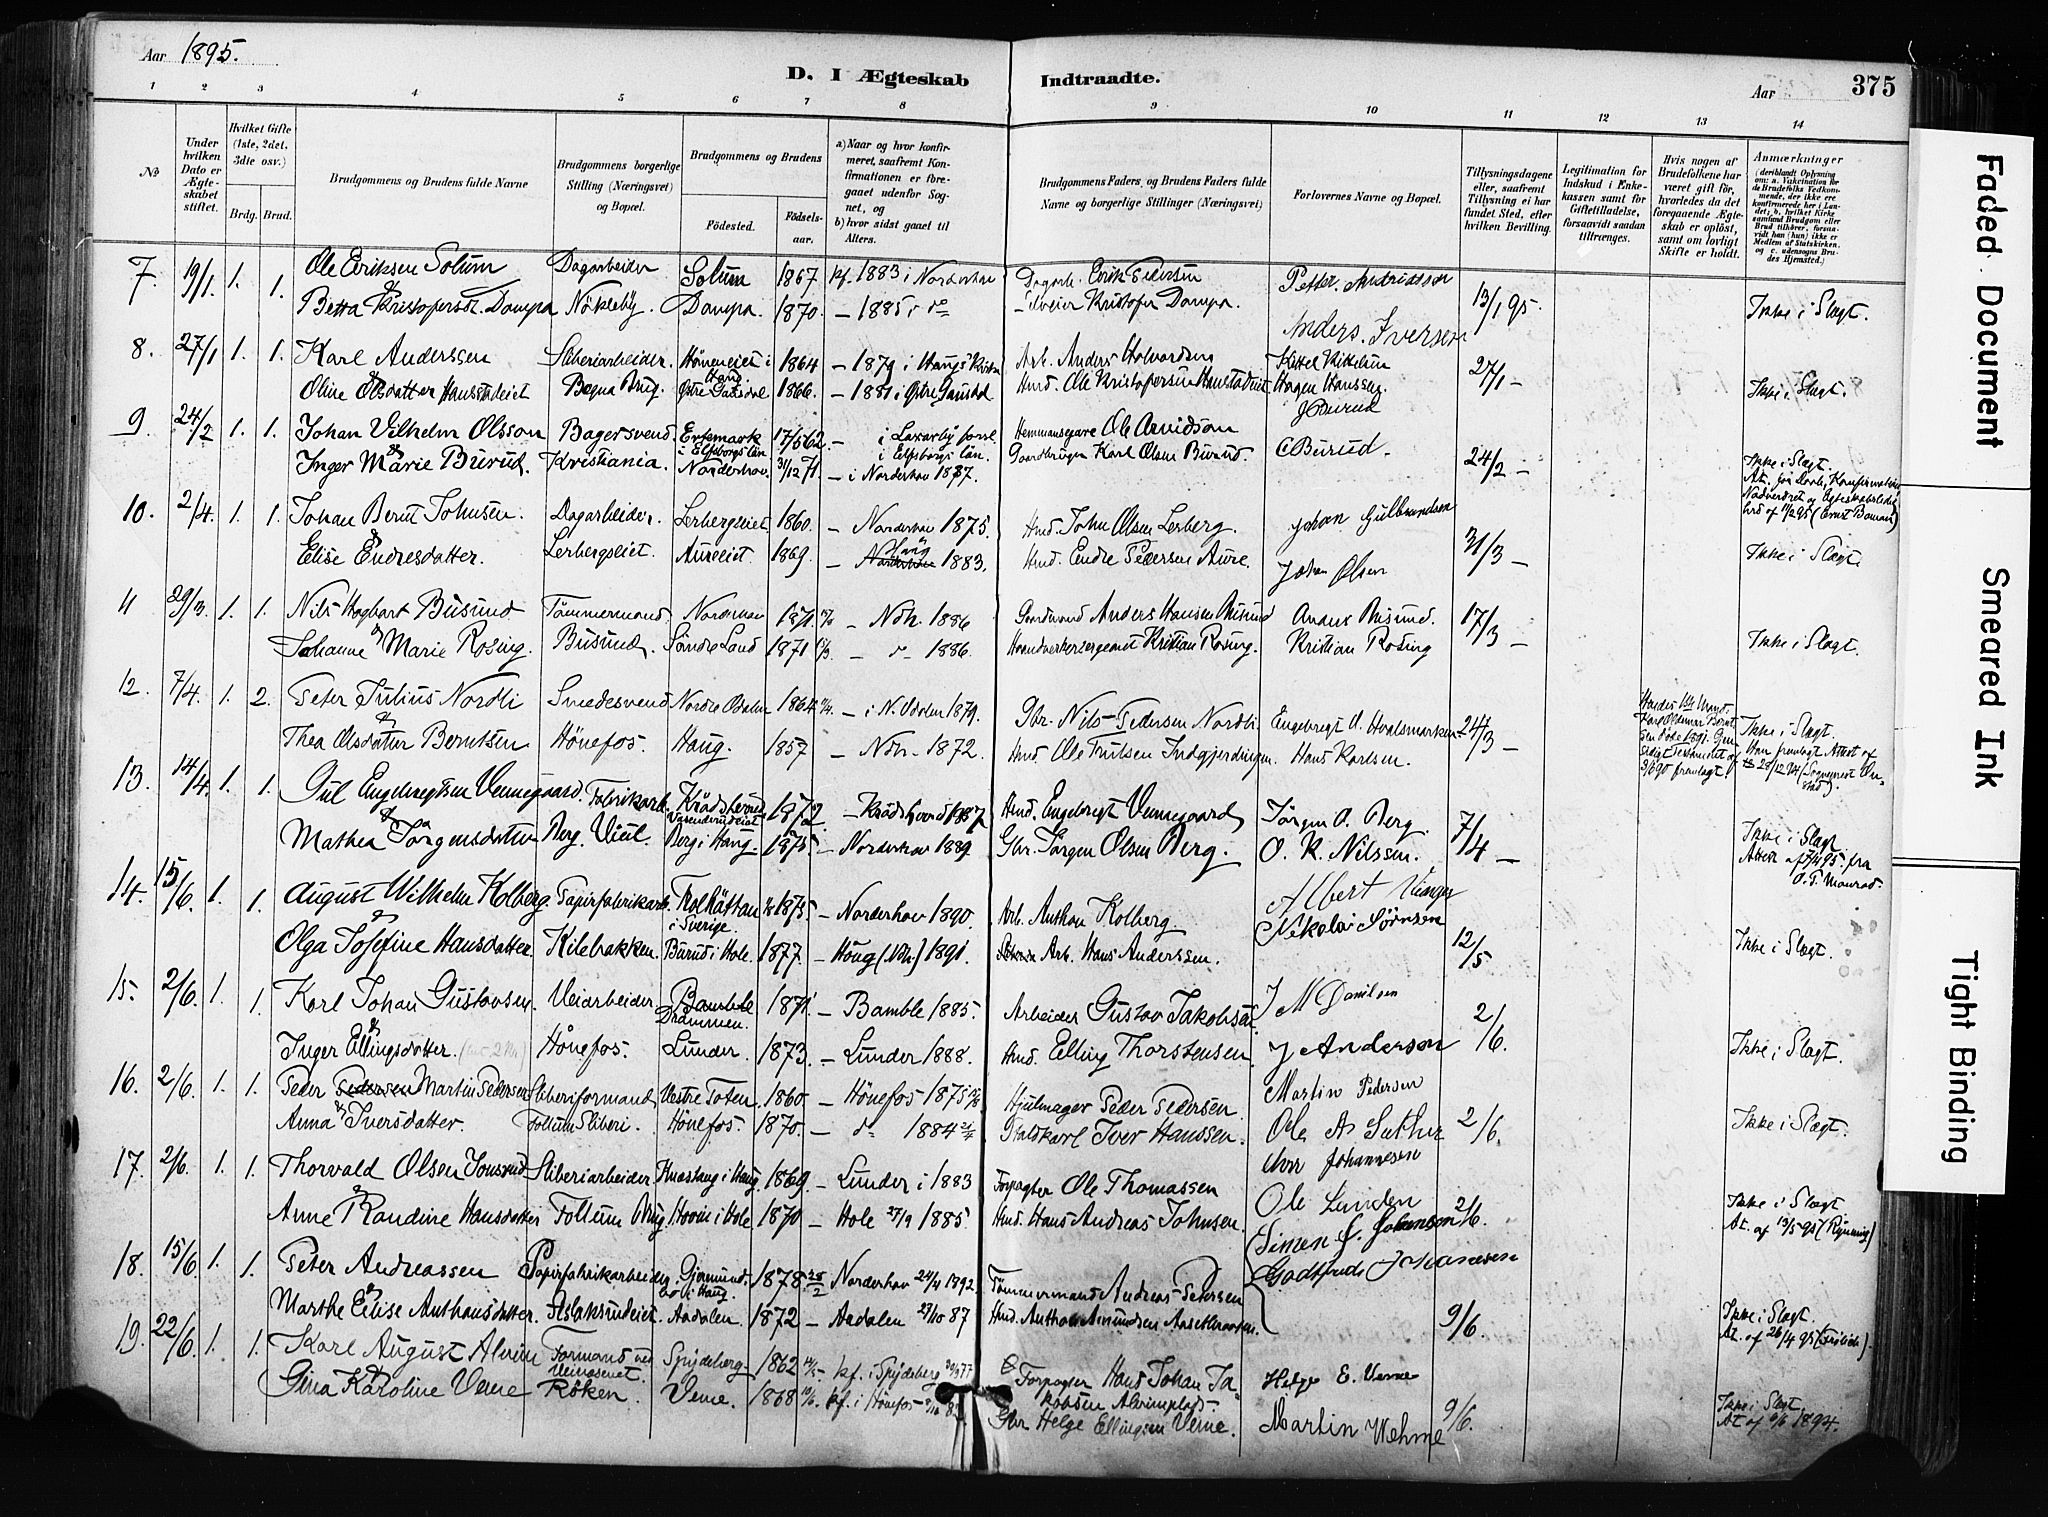 Aar 1895.
D. I Ægteskab Indtraadte.
Aar 375
1 2 3 4 5 6 7 8 9 10 11 12 13 14
No
Under hvilken Dato er Ægteskabet stiftet.
Hvilket Gifte (1ste, 2det, 3die osv.)
Brdg. Brud.
Brudgommens og Brudens fulde Navne
Brudgommens borgerlige Stilling (Næringsvei) og Bopæl.
Brudgommens og Brudens
Fødested. Fødselsaar.
a) Naar og hvor konfirmeret, saafremt Konfirmationen er foregaaet udenfor Sognet, og
b) hvor sidst gaaet til Alters.
Brudgommens Faders og Brudens Faders fulde Navne og borgerlige Stillinger (Næringsvei)
Forlovernes Navne og Bopæl.
Tillysningsdagene eller, saafremt Tillysning ei har fundet Sted, efter hvilken Bevilling.
Legitimation for Indskud i Enkekassen samt for Giftetilladelse, forsaavidt saadan tiltrænges.
Hvis nogen af Brudefolkene har været gift før, hvorledes da det foregaaende Ægteskab er opløst, samt om lovligt Skifte er holdt.
Anmærkninger (deriblandt Oplysning om: a. Vakcination for de Brudefolks Vedkommende, der ikke ere konfirmerede her i Landet; b. hvilket Kirkesamfund Brudgom eller Brud tilhører, forsaavidt han (hun) ikke er Medlem af Statskirken, og c. udensogns Brudes Hjemsted.)
7. 19/1. 1. 1. Ole Eriksen Solum Dagarbeider Solum 1867 kf. 1883 i Norderhov Dagarb. Erik Pedersen Petter Andreassen 13/1 95.
& Betta Kristofersdt. Dampa Nökleby. Dampa. 1870. – 1885 i do Selveier Kristofer Dampa. Anders Iversen Ikke i Slægt.
8. 27/1 1. 1. Karl Anderssen Sliberiarbeider. Hönenеiet i Haug 1864 – 1879 i Haugs Kirke Arb. Anders Halvordsen Kittel Kittelsen 27/1 –
& Oline Olsdatter Hanstadeiet Begna Brug. Östre Gausdal 1866. – 1881 i Östre Gausdal Hmd. Ole Kristofersen Hanstadeiet Hagen Hanssen. Ikke i Slægt.
9. 24/2 1. 1. Johan Vilhelm Olsson Bagersvend. Ertemark i Elfsborgs län 17/5 62. – i Laxarby förs. i Elfsborgs län. Hemmansegare Ole Arvidson J Burud
& Inger Marie Burud. Kristiania. Norderhov. 31/12 71. – i Norderhov 1887. Gaardbruger Karl Olsen Burud. C Burud. 24/2 –
Ikke i Slægt. At. for Daab, Konfirmation Nadverdret og Egteskabsledighed af 11/2 95 (Ernst Boman)
10. 2/4. 1. 1. Johan Bernt Johnsen. Dagarbeider. Lerbergseiet 1860. – Norderhov 1875. Hmd. John Olsen Lerberg. Johan Gulbrandsen 31/3 –
& Elise Endresdatter. Lerbergseiet. Aureeiet. 1869. – Haug 1883. Hmd. Endre Pedersen Aure. Johan Olsen Ikke i Slægt.
11 29/3. 1. 1. Nils Hagbart Busund Tömmermand. Norderhov 1871. – Ndh. 1886 Gaardmand Anders Hansen Busund Anders Busund. 17/3 –
& Johanne Marie Rosing. Busund. Söndre Land 1871 – do 1886. Haandverkersergeant Kristian Rosing. Kristian Rosing Ikke i Slægt.
12. 7/4. 1. 2. Peter Julius Nordli Smedesvend Nordre Odalen 1864. – i N. Odalen 1879. Gbr. Nils Pedersen Nordli. Engebregt A. Hvalsmarken 24/3 –
& Thea Olsdatter Berntsen Hönefos. Haug. 1857 – Ndh. 1872. Hmd. Ole Trulsen Indgjerdingen. Hans Karlsen.
Ikke i Slægt. Han fremlagt Attest af 28/12 94
13. 14/4. 1. 1. Gul Engebregtsen Vennegaard. Fabrikarb. Krödsherred 1872. – Krödsherred 1887 Hmd. Engebregt Vennegaard Jörgen O. Berg. 7/4 –
& Mathea Jörgensdatter Berg. Viul. Berg i Haug 1875. – Norderhov 1889. Gbr. Jörgen Olsen Berg. O. K. Nilssen.
Ikke i Slægt. Attest af 7/4 95. fra O. T. Monrad.
14. 15/6. 1. 1. August Wilhelm Kolberg Papirfabrikarb. Trolhättan i Sverige. 1875. – Norderhov 1890. Arb. Anthon Kolberg. Albert Vinger 12/5
& Olga Josefine Hansdatter Kilebakken. Burud i Hole. 1877. – Höug (Ndh.) 1891. Arb. Hans Anderssen. Nikolai Sörensen Ikke i Slægt.
15. 2/6. 1. 1. Karl Johan Gustavsen. Veiarbeider Bamble Drammen. 1871. – Bamble 1885. Arbeider Gustav Jakobsen J M Danilsen 2/6.
& Inger Ellingsdatter. Hönefos. Lunder. 1873. – Lunder 1888. Hmd. Elling Thorstensen J Anderson Ikke i Slægt.
16. 2/6. 1. 1. Peder Pedersen Martin Pedersen Sliberiformand Vestre Toten 1860. – Hönefos 1875 Hjulmager Peder Pedersen. Martin Pedersen
& Anna Iversdatter. Follum Sliberi. Hönefos. 1870. – do 1884 Staldkarl Iver Hanssen. Ole A Sæther 2/6. Ikke i Slægt.
17. 2/6. 1. 1. Thorvald Olsen Jonsrud Sliberiarbeider Knæstang i Haug. 1869. – Lunder i 1883 Forpagter Ole Thomassen Iver Johannesen
& Anne Randine Hansdatter Follum Brug. Hovin i Hole 1870 – Hole 27/9 1885. Hmd. Hans Andreas Johnsen. Ole Lunden 2/6.
Ikke i Slægt At. af 13/5 95 (Rynning)
18. 15/6. 1. 1. Peter Andreassen Papirfabrikarbeider Gjermundbo i Haug. 1878 25/2 – Norderhov 24/4 1892. Tömmermand Andreas Pedersen Simen S. Johansen
& Marthe Elise Anthonsdatter. Aslaksrudeiet. Aadalen. 1872 – Aadalen 23/10 87 Hmd. Anthon Amundsen Godtfred Johansen 9/6.
Ikke i Slægt. At. af 26/4 95
19. 22/6. 1. 1. Karl August Alrim Formand ved Veivæsenet. Spydeberg 1862 kf. i Spydeberg 30/9 77 Forpagter Hans Johan Jakobsen Alrimplads. Helge E. Verne
& Gina Karoline Veme Röken Veme. 1868 kf. i Hönefos Gbr Helge Ellingsen Veme. Martin Wehme 9/6.
Ikke i Slægt. At af 6/6 1894.
Faded Document
Smeared Ink
Tight Binding